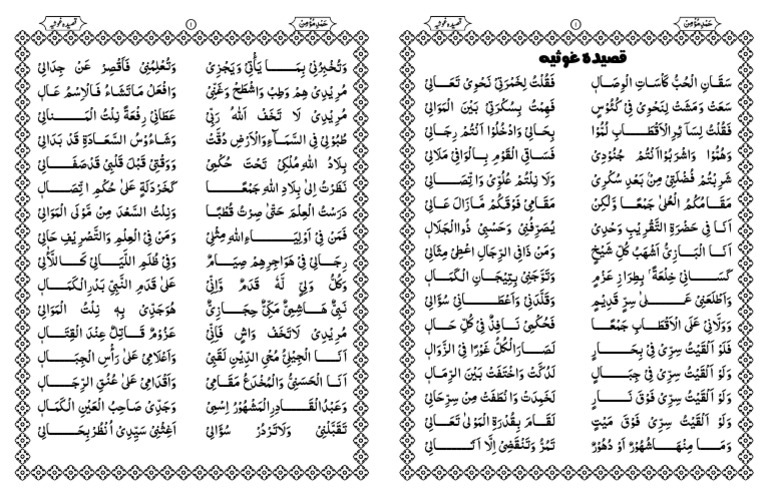 حمدِ مؤمن ۱ قصیدہ غوثیہ
قصیدہ غوثیہ
سَقَانِ الْحُبُّ كَاْسَاتِ الْوِصَالِ فَقُلْتُ لِخَمْرَتِيْ نَحْوِيْ تَعَالِيْ
سَعَتْ وَمَشَتْ لِنَحْوِيْ فِيْ كُئُوْسٍ فَهِمْتُ بِسُكْرَتِيْ بَيْنَ الْمَوَالِيْ
فَقُلْتُ لِسَآئِرِ الْاَقْطَابِ لُمُّوْا بِحَالِيْ وَادْخُلُوْا اَنْتُمْ رِجَالِيْ
وَهُمُّوْا وَاشْرَبُوْا اَنْتُمْ جُنُوْدِيْ فَسَاقِي الْقَوْمِ بِالْوَافِيْ مَلَالِيْ
شَرِبْتُمْ فُضْلَتِيْ مِنْۢ بَعْدِ سُكْرِيْ وَلَا نِلْتُمْ عُلُوِّيْ وَاتِّصَالِيْ
مَقَامُكُمُ الْعُلٰى جَمْعًا وَّلٰكِنْ مَقَامِيْ فَوْقَكُمْ مَازَالَ عَالِيْ
اَنَا فِيْ حَضْرَةِ التَّقْرِيْبِ وَحْدِيْ يُصَرِّفُنِيْ وَحَسْبِيْ ذُوالْجَلَالِ
اَنَا الْبَازِيُّ اَشْهَبُ كُلِّ شَيْخٍ وَمَنْ ذَافِي الرِّجَالِ اُعْطِيْ مِثَالِيْ
كَسَانِيْ خِلْعَةً بِطِرَازِ عَزْمٍ وَتَوَّجَنِيْ بِتِيْجَانِ الْكَمَالِ
وَاَطْلَعَنِيْ عَلٰى سِرٍّ قَدِيْمٍ وَقَلَّدَنِيْ وَاَعْطَانِيْ سُؤَالِيْ
وَوَلَّانِيْ عَلَى الْاَقْطَابِ جَمْعًا فَحُكْمِيْ نَافِذٌ فِيْ كُلِّ حَالِ
فَلَوْ اَلْقَيْتُ سِرِّيْ فِيْ بِحَارٍ لَصَارَ الْكُلُّ غَوْرًا فِي الزَّوَالِ
وَلَوْ اَلْقَيْتُ سِرِّيْ فِيْ جِبَالٍ لَدُكَّتْ وَاخْتَفَتْ بَيْنَ الرِّمَالِ
وَلَوْ اَلْقَيْتُ سِرِّيْ فَوْقَ نَارٍ لَخَمِدَتْ وَانْطَفَتْ مِنْ سِرِّحَالِيْ
وَلَوْ اَلْقَيْتُ سِرِّيْ فَوْقَ مَيْتٍ لَقَامَ بِقُدْرَةِ الْمَوْلٰى تَعَالِيْ
وَمَا مِنْهَا شُهُوْرٌ اَوْ دُهُوْرٌ تَمُرُّ وَتَنْقَضِيْ اِلَّا اَتَالِيْ
حمدِ مؤمن ۱ قصیدہ غوثیہ
وَتُخْبِرُنِيْ بِمَا يَأْتِيْ وَيَجْرِيْ وَتُعْلِمُنِيْ فَاَقْصِرْ عَنْ جِدَالِيْ
مُرِيْدِيْ هِمْ وَطِبْ وَاشْطَحْ وَغَنِّيْ وَافْعَلْ مَاتَشَاءُ فَالْاِسْمُ عَالِ
مُرِيْدِيْ لَا تَخَفْ اَللّٰهُ رَبِّيْ عَطَانِيْ رِفْعَةً نِلْتُ الْمَنَالِيْ
طُبُوْلِيْ فِي السَّمَآءِ وَالْاَرْضِ دُقَّتْ وَشَاءُوْسُ السَّعَادَةِ قَدْ بَدَالِيْ
بِلَادُ اللهِ مُلْكِيْ تَحْتَ حُكْمِيْ وَوَقْتِيْ قَبْلَ قَلْبِيْ قَدْصَفَالِيْ
نَظَرْتُ اِلٰى بِلَادِ اللهِ جَمْعًا كَخَرْدَلَةٍ عَلٰى حُكْمِ اتِّصَالِ
دَرَسْتُ الْعِلْمَ حَتّٰى صِرْتُ قُطْبًا وَنِلْتُ السَّعْدَ مِنْ مَّوْلَى الْمَوَالِيْ
فَمَنْ فِيْ اَوْلِيَاءِ اللهِ مِثْلِيْ وَمَنْ فِي الْعِلْمِ وَالتَّصْرِيْفِ حَالِيْ
رِجَالِيْ فِيْ هَوَاجِرِهِمْ صِيَامٌ وَفِيْ ظُلَمِ اللَّيَالِيْ كَاللَّاٰلِيْ
وَكُلُّ وَلِيٍّ لَّهٗ قَدَمٌ وَّاِنِّيْ عَلٰى قَدَمِ النَّبِيِّ بَدْرِ الْكَمَالِ
نَبِيٌّ هَاشِمِيٌّ مَكِّيٌّ حِجَازِيٌّ هُوَجَدِّيْ بِهٖ نِلْتُ الْمَوَالِيْ
مُرِيْدِيْ لَاتَخَفْ وَاشٍ فَاِنِّيْ عَزُوْمٌ قَاتِلٌ عِنْدَ الْقِتَالِ
اَنَا الْجِيْلِيُّ مُحْيِ الدِّيْنِ لَقَبِيْ وَاَعْلَامِيْ عَلٰى رَأْسِ الْجِبَالِ
اَنَا الْحَسَنِيُّ وَالْمُخْدَعُ مَقَامِيْ وَاَقْدَامِيْ عَلٰى عُنُقِ الرِّجَالِ
وَعَبْدُالْقَادِرِ الْمَشْهُوْرُ اِسْمِيْ وَجَدِّيْ صَاحِبُ الْعَيْنِ الْكَمَالِ
تَقَبَّلْنِيْ وَلَاتَرْدُدْ سُؤَالِيْ اَغِثْنِيْ سَيِّدِيْ اُنْظُرْ بِحَالِيْ